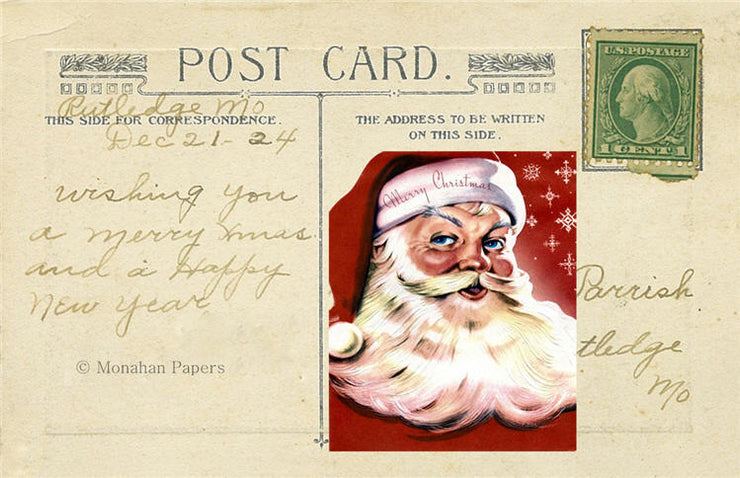 POST CARD.
U.S. POSTAGE
1 CENT 1
Rutledge Mo
THIS SIDE FOR CORRESPONDENCE.
Dec 21-24
THE ADDRESS TO BE WRITTEN
ON THIS SIDE.
wishing you
a merry xmas
and a Happy
New Year
Merry Christmas
Parrish
tledge
Mo
© Monahan Papers